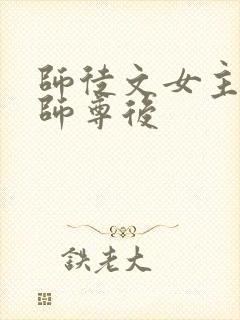 師徒文女主
師尊後
鉄老大